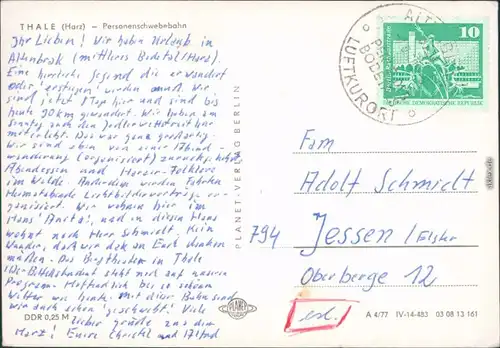 THALE (Harz) – Personenschwebebahn
Ihr Lieben! Wir haben Urlaub in
Altenbrak (mittleres Bodetal/Harz).
Eine herrliche Gegend die erwandert
oder "erstiegen" werden muß. Wir
sind jetzt 1 Tage hier und sind bis
heute 30 km gewandert. Wir haben am
Sonntag auch den Jodler
miterlebt. Das war ganz großartig.
Wir sind eben von einer Abend-
wanderung (organisiert) zurück, mit
Abendessen und Harzer-Folklore
im Walde. Außerdem werden Fahrten
Heimatabende Lichtbildervorträge or-
ganisiert. Wir wohnen hier im
Haus "Anita", und in diesem Haus
wohnt noch Herr Schmidt. Kein
Wunder, daß wir da an Euch denken
mußten. Das Bergtheater in Thale
steht noch auf unserem
Program. Hoffentlich bei so schönem
Wetter wie heute. Mit dieser Bahn sind
wir auch schon "geschwebt". Viele
lieber Grüße aus dem
Harz! Eure Christel und
DDR 0,25 M
PLANET-VERLAG BERLIN
PLANET
ALTENBRAK
LUFTKURORT
10
DEUTSCHE DEMOKRATISCHE REPUBLIK
Fam
Adolf Schmidt
794 Jessen/Elster
Oberberge 12
erl.
A 4/77 IV-14-483 03 08 13 161